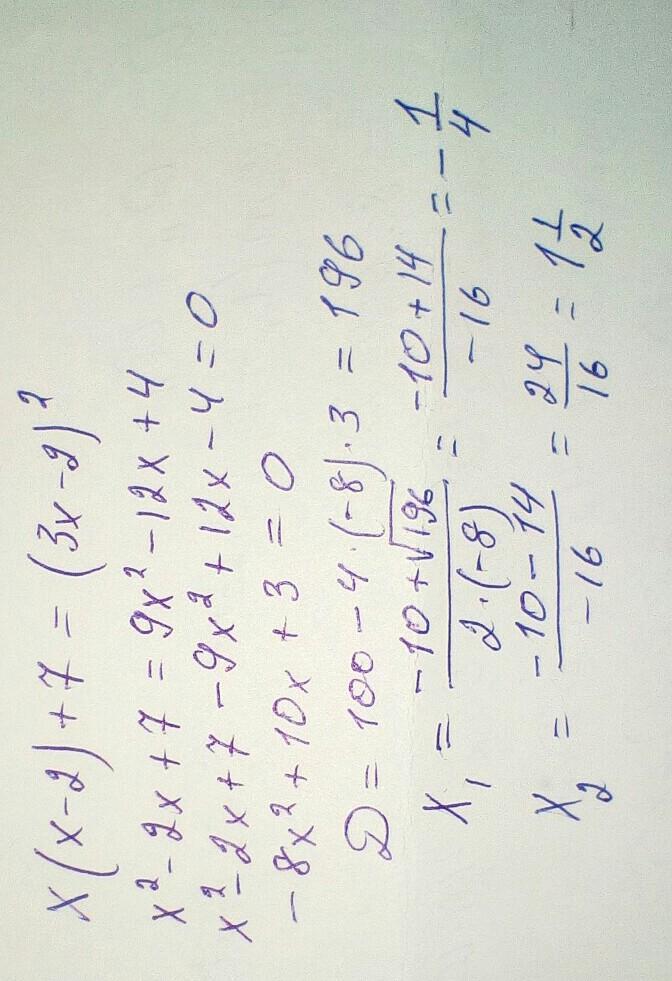 x(x-2)+7=(3x-2)²
x²-2x+7=9x²-12x+4
x²-2x+7-9x²+12x-4=0
-8x²+10x+3=0
D=100-4·(-8)·3=196
x₁ = (-10+√196)/(2·(-8)) = (-10+14)/(-16) = -1/4
x₂ = (-10-14)/(-16) = 24/16 = 1 1/2